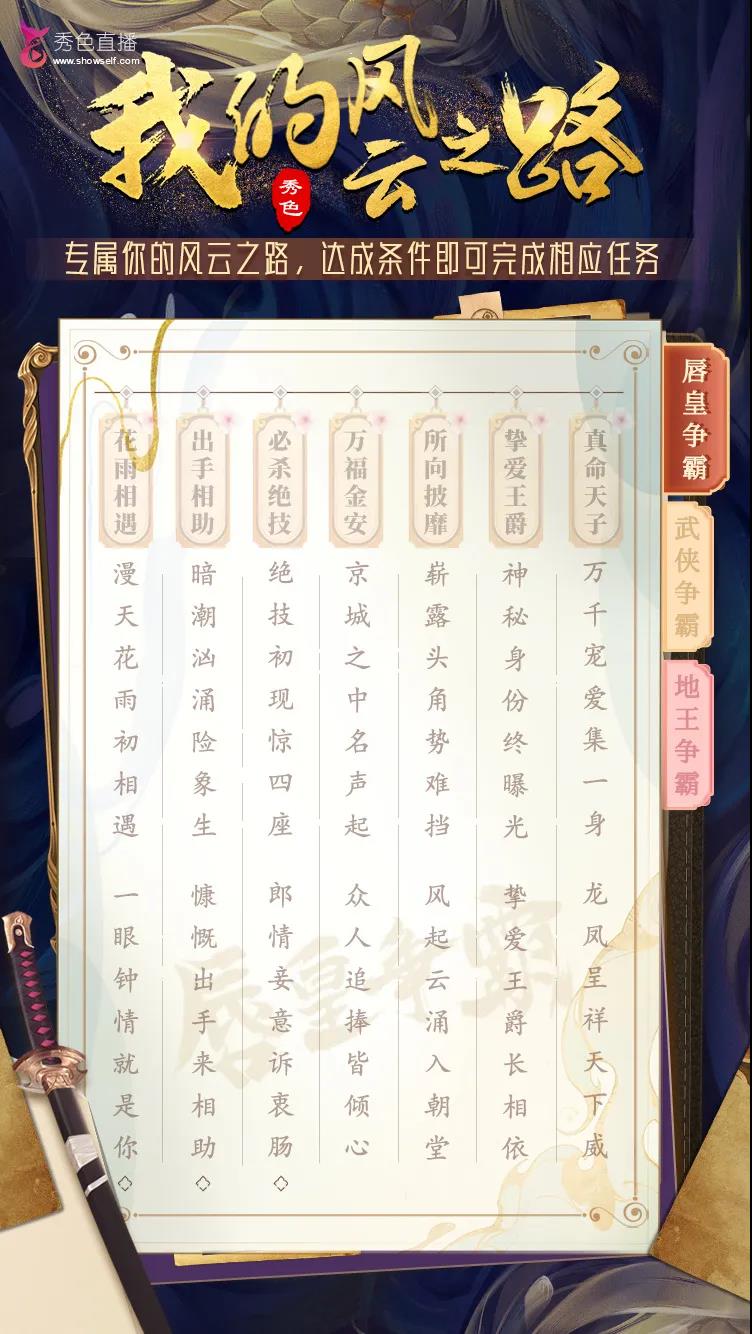 秀色直播
www.showself.com
我的风云之路
秀色
专属你的风云之路，达成条件即可完成相应任务
花雨相遇
漫天花雨初相遇
一眼钟情就是你
出手相助
暗潮汹涌险象生
慷慨出手来相助
必杀绝技
绝技初现惊四座
郎情妾意诉衷肠
万福金安
京城之中名声起
众人追捧皆倾心
所向披靡
崭露头角势难挡
风起云涌入朝堂
挚爱王爵
神秘身份终曝光
挚爱王爵长相依
真命天子
万千宠爱集一身
龙凤呈祥天下威
唇皇争霸
唇皇争霸
武侠争霸
地王争霸